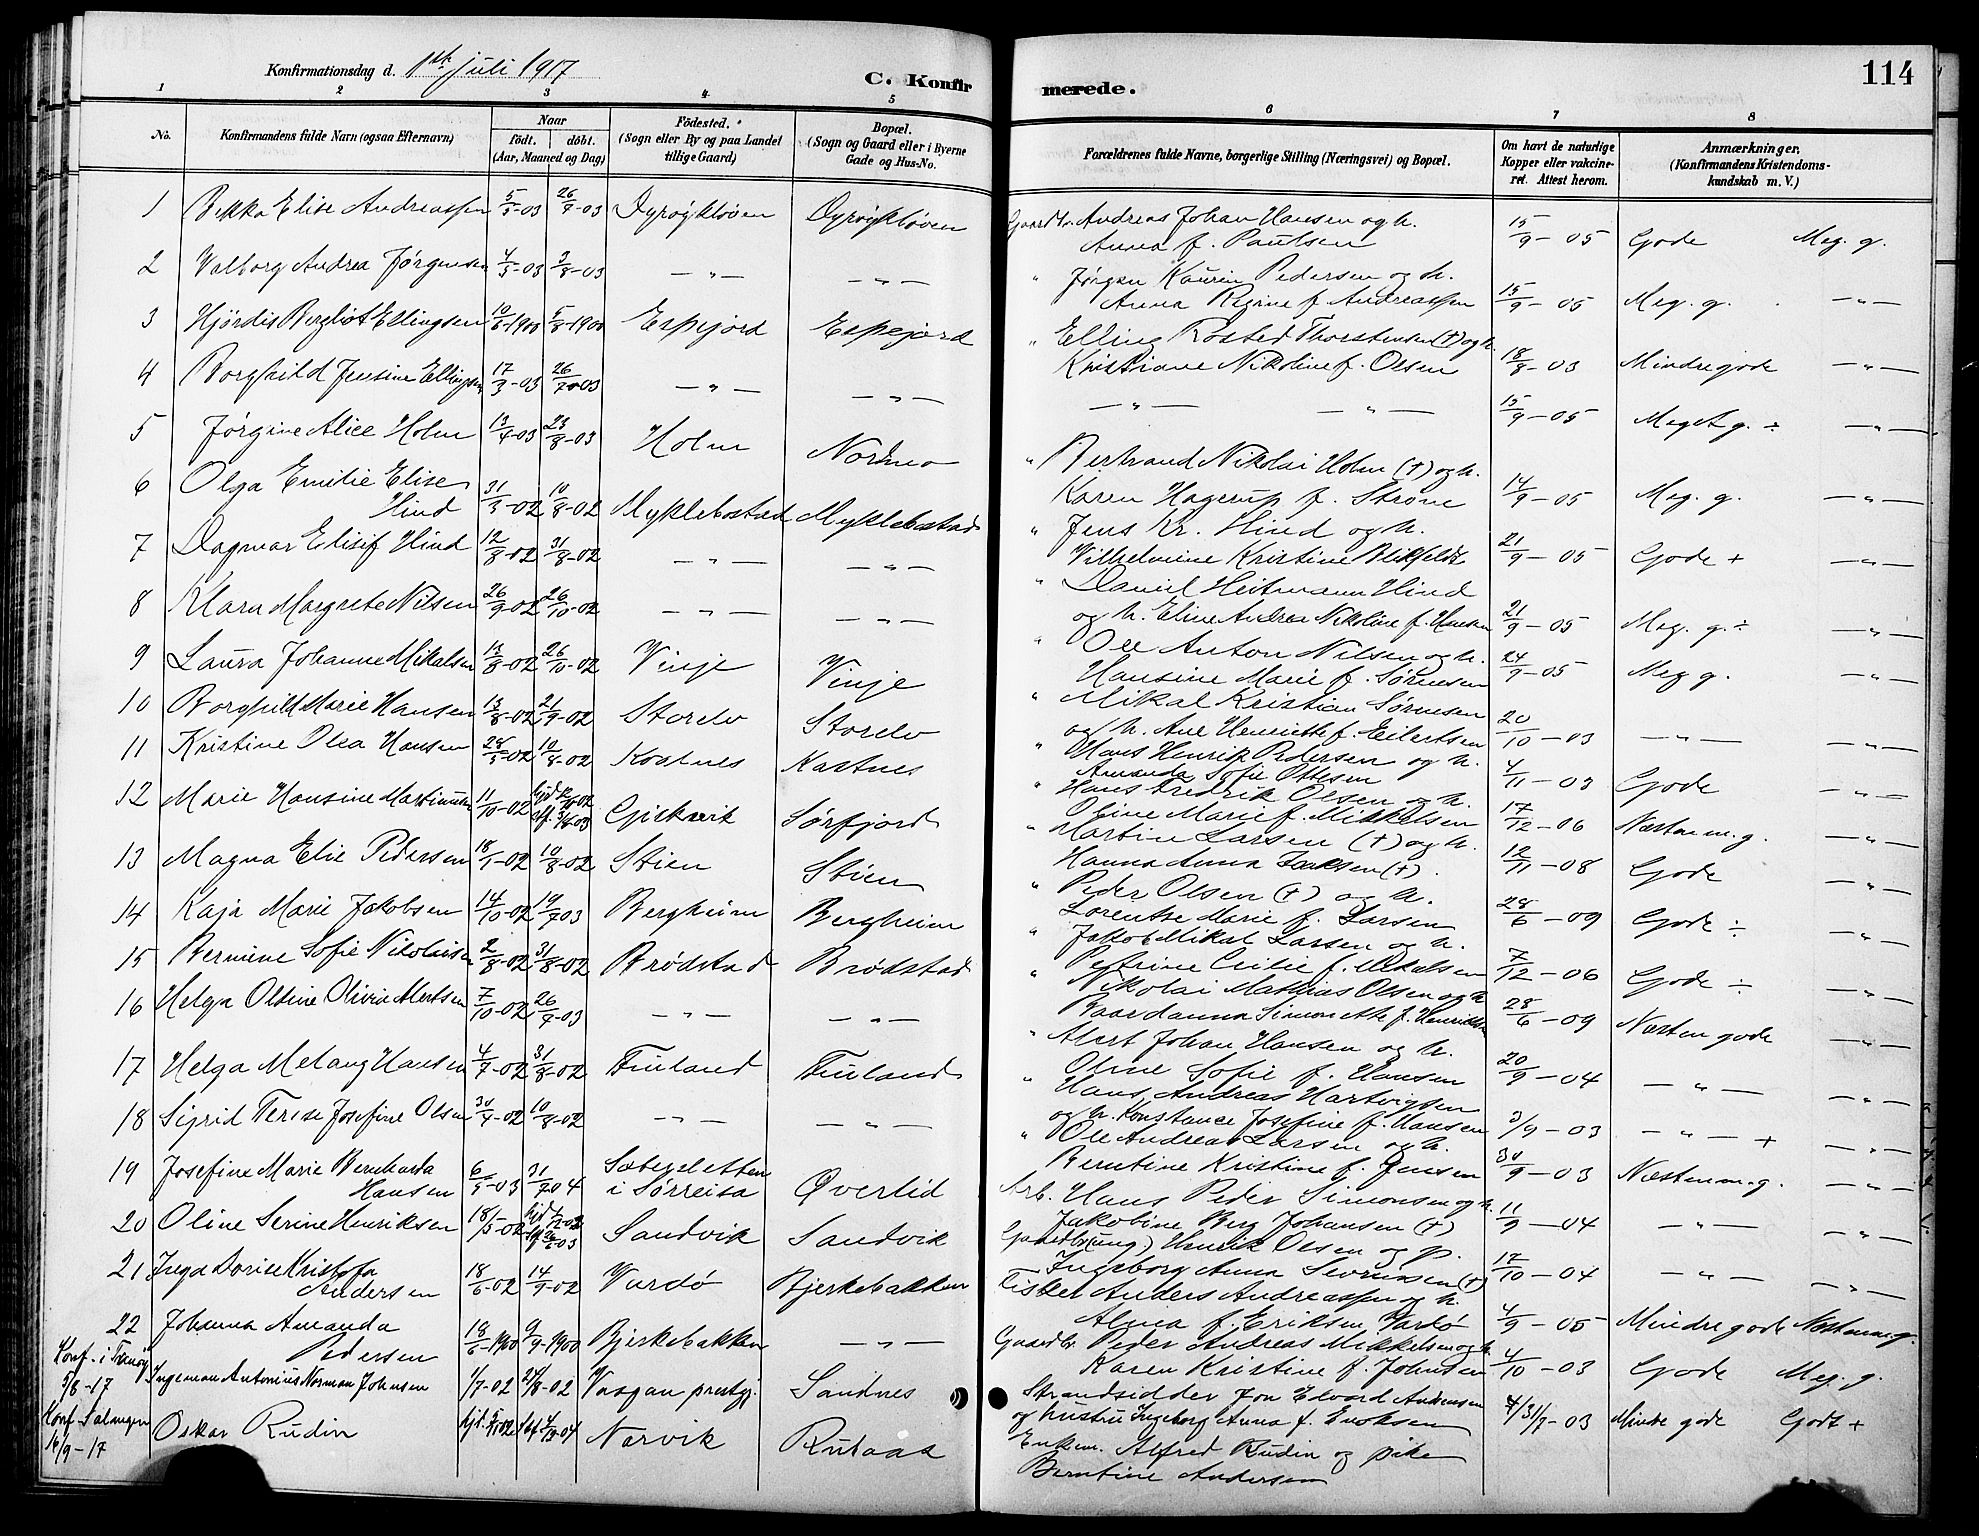 Konfirmationsdag d. 1ste juli 1917
C. Konfirmerede.
114
1 2 3 4 5 6 7 8
No.
Konfirmandens fulde Navn (ogsaa Efternavn)
Naar
födt. döbt.
(Aar, Maaned og Dag)
Födested.
(Sogn eller By og paa Landet
tillige Gaard)
Bopæl.
(Sogn og Gaard eller i Byerne
Gade og Hus-No.
Forældrenes fulde Navne, borgerlige Stilling (Næringsvei) og Bopæl.
Om havt de naturlige
Kopper eller vakcine-
ret. Attest herom.
Anmærkninger.
(Konfirmandens Kristendoms-
kundskab m. V.)
1 Bekka Elise Andreassen 5/5-03 26/7-03 Dyröykloven Dyröykloven Gaardbr. Andreas Johan Hansen og h.
Anna f. Paulsen 15/9-05 Gode Meg. g.
2 Valborg Andrea Jørgensen 4/5-03 2/8-03 — " — — " — " Jørgen Kaurin Pedersen og h.
Anna Regine f. Andreassen 15/9-05 Meg. g. — " —
3 Hjördis Bergliot Ellingsen 10/6-1900 5/8-1900 Espejord Espejord " Elling Rosted Thorstensen (†) og h.
Kristiane Nikoline f. Olsen 18/8-03 Mindre gode — " —
4 Borghild Jensine Ellingsen 17/3-03 26/7-03 — " — — " — — " — — " — 15/9-05 Meget g. ÷ — " —
5 Jørgine Alice Holm 13/4-03 23/8-03 Holm Nordmo " Bertrand Nikolai Holm (†) og h.
Karen Hagerup f. Strøm 14/9-05 Meg. g. — " —
6 Olga Emilie Elise
Hind 31/3-02 10/8-02 Myklebostad Myklebostad " Jens Kr. Hind og h.
Vilhelmine Kristine Blikfeldt 21/9-05 Gode + — " —
7 Dagmar Elisif Hind 12/8-02 31/8-02 — " — — " — " Daniel Heitmann Hind
og h. Eline Andrea Nikoline f. Hansen 21/9-05 Meg. g. ÷ — " —
8 Klara Margrete Nilsen 26/9-02 26/10-02 — " — — " — " Ole Anton Nilsen og h.
Hansine Marie f. Sørensen 24/9-05 Meg g. — " —
9 Laura Johanne Mikalsen 13/8-02 26/10-02 Vinje Vinje " Mikal Kristian Sørensen
og h. Ane Henriette f. Eilertsen 20/10-03 — " — — " —
10 Borghild Marie Hansen 13/8-02 21/9-02 Storelv Storelv " Hans Henrik Pedersen og h.
Amanda Sofie Ottesen 4/11-03 Gode — " —
11 Kristine Olea Hansen 28/5-02 10/8-02 Kastnes Kastnes " Hans Fredrik Olsen og h.
Oline Marie f. Mikkelsen 17/12-06 Næsten m. g. — " —
12 Marie Hansine Martinsen 11/10-02 Gjeskvik Sørfjord " Martin Larsen (†) og h.
Hanna Anna (†) 12/11-08 Gode — " —
13 Magna Elie Pedersen 18/1-02 10/8-02 Stien Stien " Peder Olsen (†) og h.
Lorentse Marie f. Larsen 28/6-09 Gode ÷ — " —
14 Kaja Marie Jakobsen 14/10-02 19/7 03 Bergheim Bergheim " Jakob Mikal Larsen og h.
Petrine Cecilie f. Mikalsen 7/12-06 Gode ÷ — " —
15 Bernine Sofie Nikolaisen 2/8-02 31/8-02 Brødstad Brødstad " Nikolai Mathias Olsen og h
Baardanna Simonette f. Henriksen 28/6-09 Næsten gode — " —
16 Helga Oltine Olivia Albertsen 7/10-02 26/7-03 — " — — " — " Albert Johan Hansen og h.
Oline Sofie f. Hansen 20/9-04 — " — — " —
17 Helga Melany Hansen 4/7-02 31/8-02 Finland Finland " Hans Andreas Hartvigsen
og h. Konstance Josefine f. Hansen 3/9-03 — " — + — " —
18 Sigrid Terese Josefine Olsen 30/4-02 10/8-02 — " — — " — " Ole Andreas Larsen og h.
Berntine Kristine f. Jensen 30/9-03 Næsten m. g. — " —
19 Josefine Marie Bernharda
Hansen 6/5-03 31/7 04 Sætersletten
i Sørreisa Øverlid Arb. Hans Peder Simonsen og h.
Jakobine Berg Johansen (†) 11/9-04 — " — — " —
20 Oline Serine Henriksen 18/5-02 Sandvik Sandvik Gaardbr. (ung.) Henrik Olsen og p.
Ingeborg Anna Sevrinsen (†) 17/10-04 — " — — " —
21 Inga Dorice Kristofa
Andersen 18/6-02 14/9-02 Vardö Bjerkebakken Fisker Anders Andreassen og h.
Alma f. Eriksen, Vardö 4/9-05 Mindre gode Næsten m. g.
22 Johanna Amanda
Pedersen 18/6-1900 9/9-1900 Bjerkebakken — " — Gaardbr. Peder Andreas Mikkelsen og h.
Karen Kristine f. Johnsen 4/10-03 Gode Meg. g.
Konf. i Tranöy
5/8-17 Ingeman Antonius Norman Johnsen 1/7-02 24/8-02 Vasgan prestgj. Sandnes Strandsidder Jon Edvard Andreassen
og hustru Ingeborg Anna f. Enoksen 31/7-03 Mindre gode Godt +
Konf. Salangen
16/9-17 Oskar Rudin Narvik Rulaas Enkem. Alfred Rudin og pike
Berntine Andersen